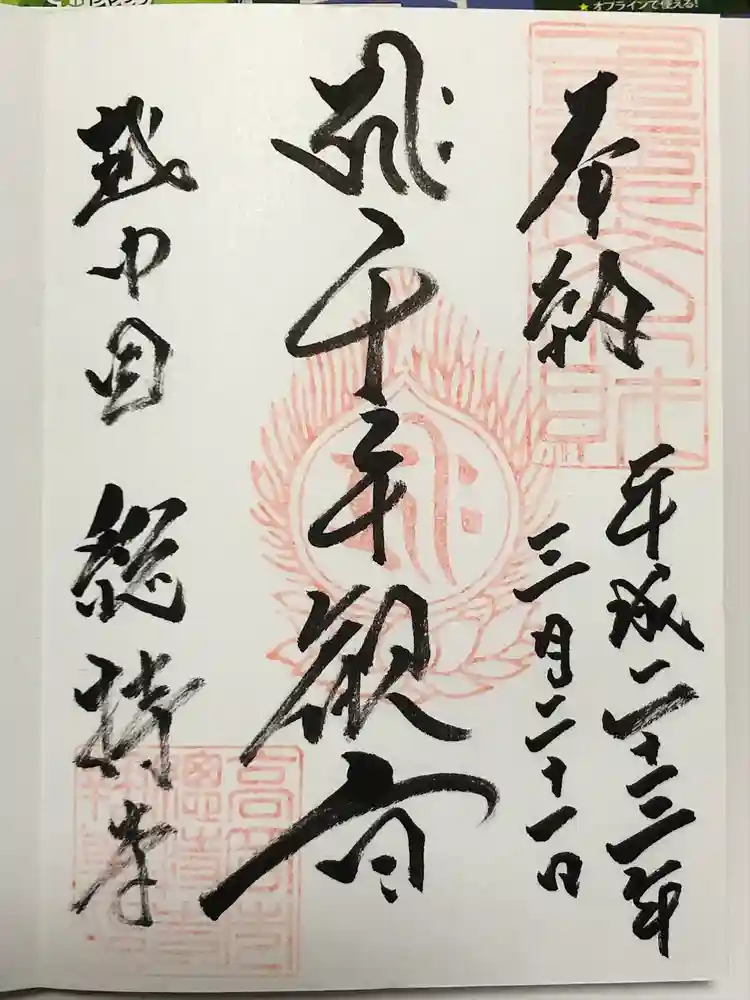 ★オフラインで使える!
奉納
平成二十三年
三月二十一日
ह्रीः 千手観音
越中国 総持寺